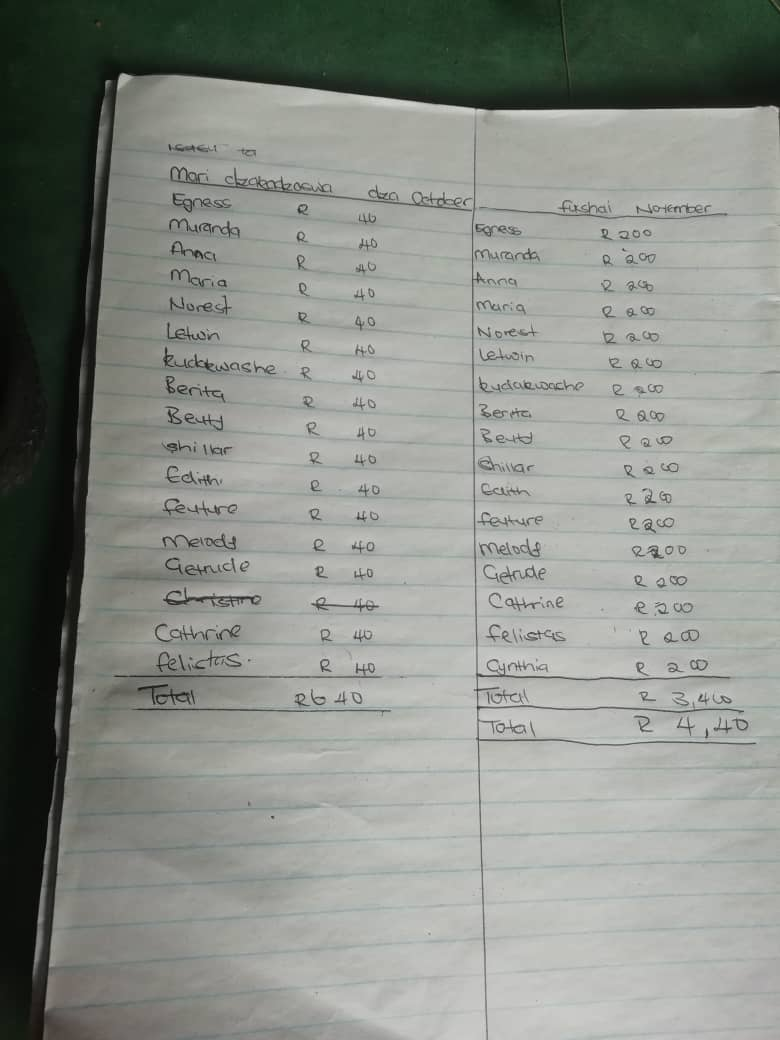 Mari dzakadzoswa dza October
Egness R 40
Muranda R 40
Anna R 40
Maria R 40
Norest R 40
Letwin R 40
kudakwashe. R 40
Berita R 40
Beuty R 40
shillar R 40
Edith R 40
feuture R 40
Melody R 40
Getrude R 40
Christine R 40
Cathrine R 40
felictas. R 40
Total R640
fushai November
Egness R 200
Muranda R 200
Anna R 200
Maria R 200
Norest R 200
Letwin R 200
kudakwache R 200
Berita R 200
Beuty R 200
Shillar R 200
Edith R 200
feuture R 200
Melody R 200
Getrude R 200
Cathrine R 200
felistas R 200
Cynthia R 200
Total R 3,400
Total R 4,40